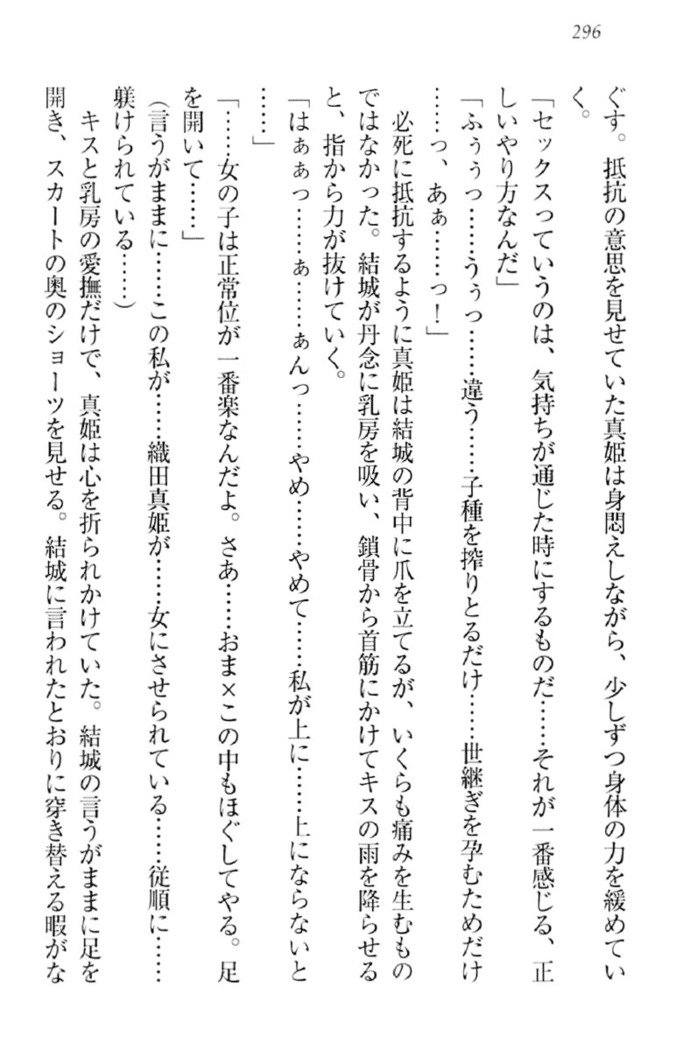 296
ぐす。抵抗の意思を見せていた真姫は身悶えしながら、少しずつ身体の力を緩めてい
く。
「セックスっていうのは、気持ちが通じた時にするものだ……それが一番感じる、正
しいやり方なんだ」
「ふぅぅっ……うぅっ……違う……子種を搾りとるだけ……世継ぎを孕むためだけ
……っ、あぁ……っ！」
必死に抵抗するように真姫は結城の背中に爪を立てるが、いくらも痛みを生むもの
ではなかった。結城が丹念に乳房を吸い、鎖骨から首筋にかけてキスの雨を降らせる
と、指から力が抜けていく。
「はぁぁっ……ぁ……ぁんっ……やめ……やめて……私が上に……上にならないと
……」
「……女の子は正常位が一番楽なんだよ。さあ……おま×この中もほぐしてやる。足
を開いて……」
（言うがままに……この私が……織田真姫が……女にさせられている……従順に……
躾けられている……）
キスと乳房の愛撫だけで、真姫は心を折られかけていた。結城の言うがままに足を
開き、スカートの奥のショーツを見せる。結城に言われたとおりに穿き替える暇がな